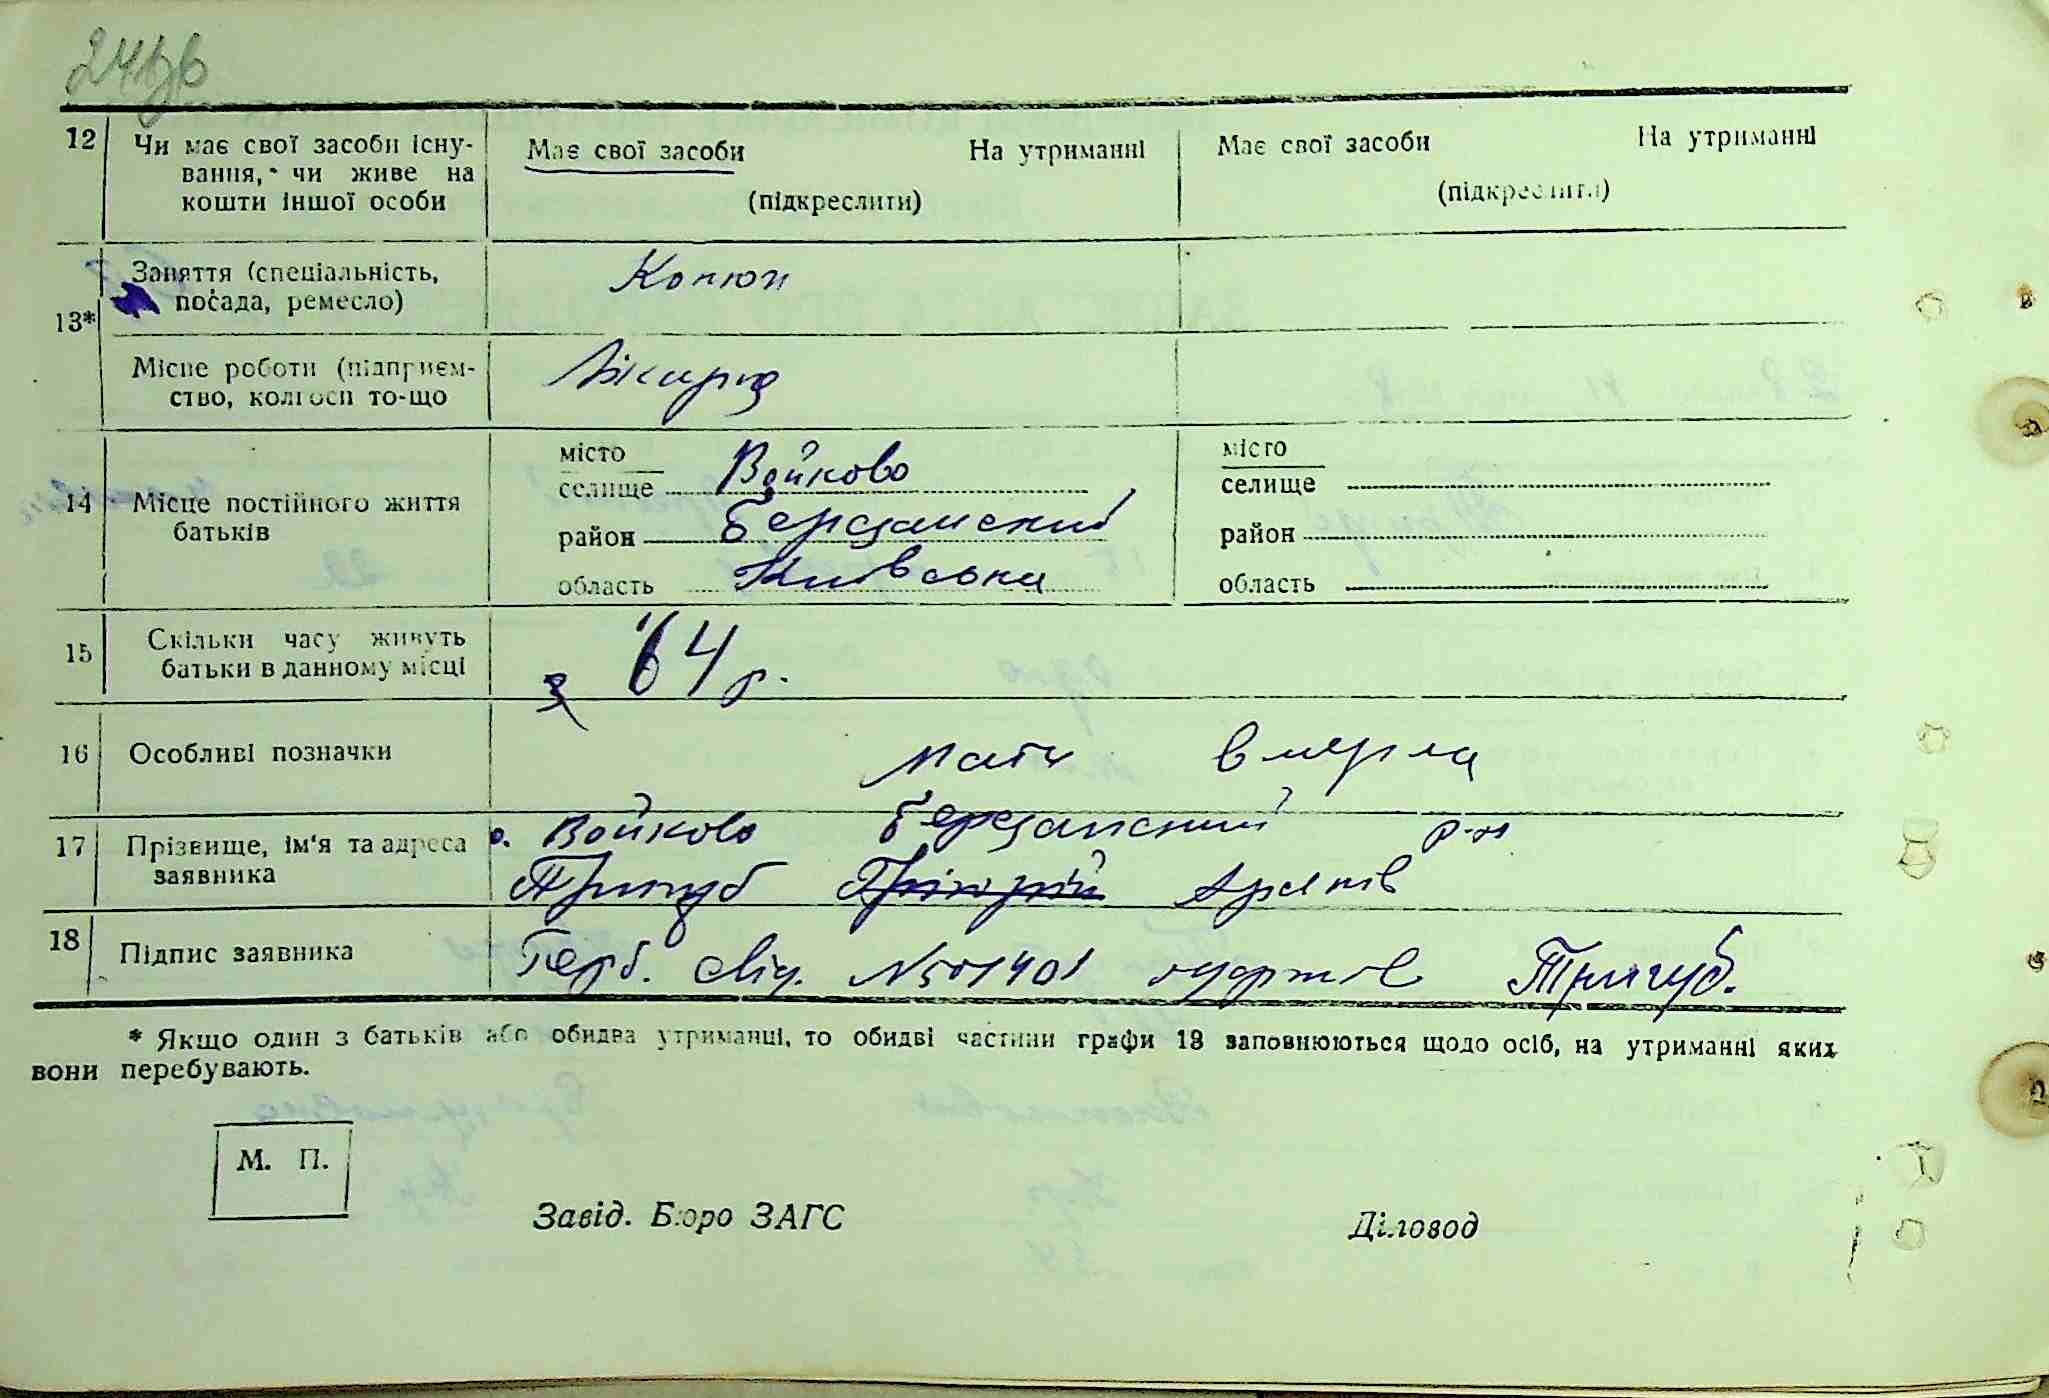 24
12 Чи має свої засоби існу-
вання, чи живе на
кошти іншої особи
Має свої засоби На утриманні
(підкреслити)
Має свої засоби На утриманні
(підкреслити)
13*
Заняття (спеціальність,
посада, ремесло)
Конюх
Місце роботи (підприєм-
ство, колгосп то-що
Лікарня
14 Місце постійного життя
батьків
місто
селище Войково
район Березанский
область Київська
місто
селище
район
область
15 Скільки часу живуть
батьки в данному місці
з 64 р.
16 Особливі позначки
мати вмерла
17 Прізвище, ім'я та адреса
заявника
с. Войково Березанский р-н
Тригуб Григорій
18 Підпис заявника
Герб. свід. №501401 одержав Тригуб.
* Якщо один з батьків або обидва утриманці, то обидві частини графи 13 заповнюються щодо осіб, на утриманні яких
вони перебувають.
М. П.
Завід. Бюро ЗАГС Діловод